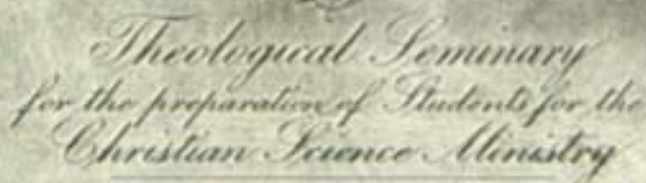 Theological Seminary
for the preparation of Students for the
Christian Science Ministry